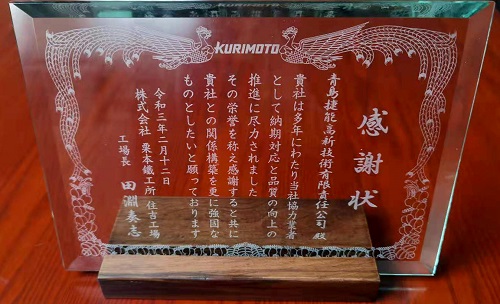 KURIMOTO
感謝状
青島捷能高新技術有限責任公司 殿
貴社は多年にわたり当社協力業者
として納期対応と品質の向上の
推進に尽力されました
その栄誉を称え感謝すると共に
貴社との関係構築を更に強固な
ものとしたいと願っております
令和三年二月十二日
株式会社 栗本鐵工所 住吉工場
工場長 田淵泰志